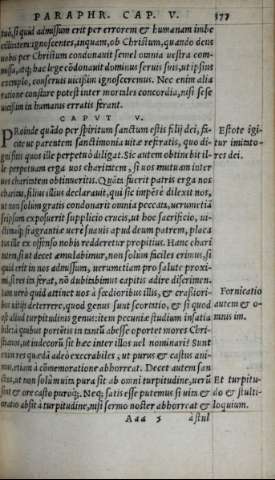 PARAPHR. CAP. V. 577
tuò, si quid admissum erit per errorem & humanam imbe
cillitatem: ignoscentes, inquam, ob Christum, quando deus
uobis per Christum condonauit semel omnia uestra com-
missa, atq; hac lege cōdonauit dominus seruis suis, ut ipsius
exemplo, conseruis uicissim ignosceremus. Nec enim alia
ratione constare potest inter mortales concordia, nisi sese
uicissim in humanis erratis ferant.
CAPVT V.
PRoinde quādo per spiritum sanctum estis filij dei, fa-
cite ut parentem sanctimonia uitæ referatis, quo di-
gnis sitis quos ille perpetuò diligat. Sic autem obtinebit il-
le perpetuam erga uos charitatem, si uos mutuam inter
uos charitatem obtinueritis. Quāti fuerit patris erga nos
charitas, filius illius declarauit, qui sic impēse dilexit nos,
ut non solum gratis condonarit omnia peccata, uerumetiā
seipsum exposuerit supplicio crucis, ut hoc sacrificio, ui-
ctimaq; fragrantiæ uerè suauis apud deum patrem, placa
tus ille ex offenso nobis redderetur propitius. Hanc chari
tatem, si ut decet æmulabimur, non solum faciles erimus, si
quid erit in nos admissum, uerumetiam pro salute proxi-
mi, si res ita ferat, nō dubitabimus capitis adire discrimen.
Iam uerò quid attinet uos à sœdioribus illis, & crassiori-
bus uitijs deterrere, quod genus sunt scortatio, & si quod
est aliud turpitudinis genus: item pecuniæ studium insatia
bile: à quibus porrò usque in tantū abesse oportet mores Chri-
stianos, ut indecorū sit hæc inter illos uel nominari? Sunt
enim res quædā adeò execrabiles; ut purus & castus ani-
mus, etiam à cōmemoratione abhorreat. Decet autem san
ctos, ut non solùm uita pura sit ab omni turpitudine, uerū
sint & ore casto puroq;. Neq; satis esse putemus si uita &
oratio absit à turpitudine, nisi sermo noster abhorreat &
Aaa 5 à stul
Estote igi-
tur imitato-
res dei.
Fornicatio
autem & o-
mnis im.
Et turpitu-
do & stulti-
loquium.